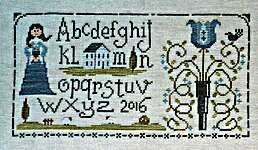 Abcdefghij
kl mn
opqrstuv
wxyz 2016